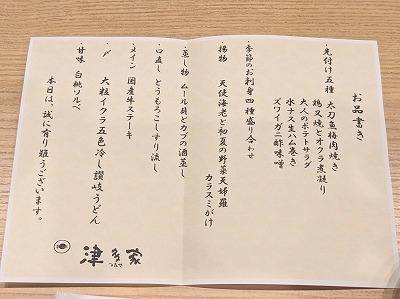 お品書き
・先付け五種 太刀魚梅肉焼き
鶏叉焼とオクラ煮凝り
大人のポテトサラダ
水ナス生ハム巻き
ズワイガニ酢味噌
・季節のお刺身四種盛り合わせ
・揚物 天使海老と初夏の野菜天婦羅
カラスミがけ
・蒸し物 ムール貝とカブの酒蒸し
・口直し とうもろこしすり流し
・メイン 国産牛ステーキ
・〆 大粒イクラ五色冷し讃岐うどん
・甘味 白桃ソルベ
本日は、誠に有り難うございます。
津多家
つたや